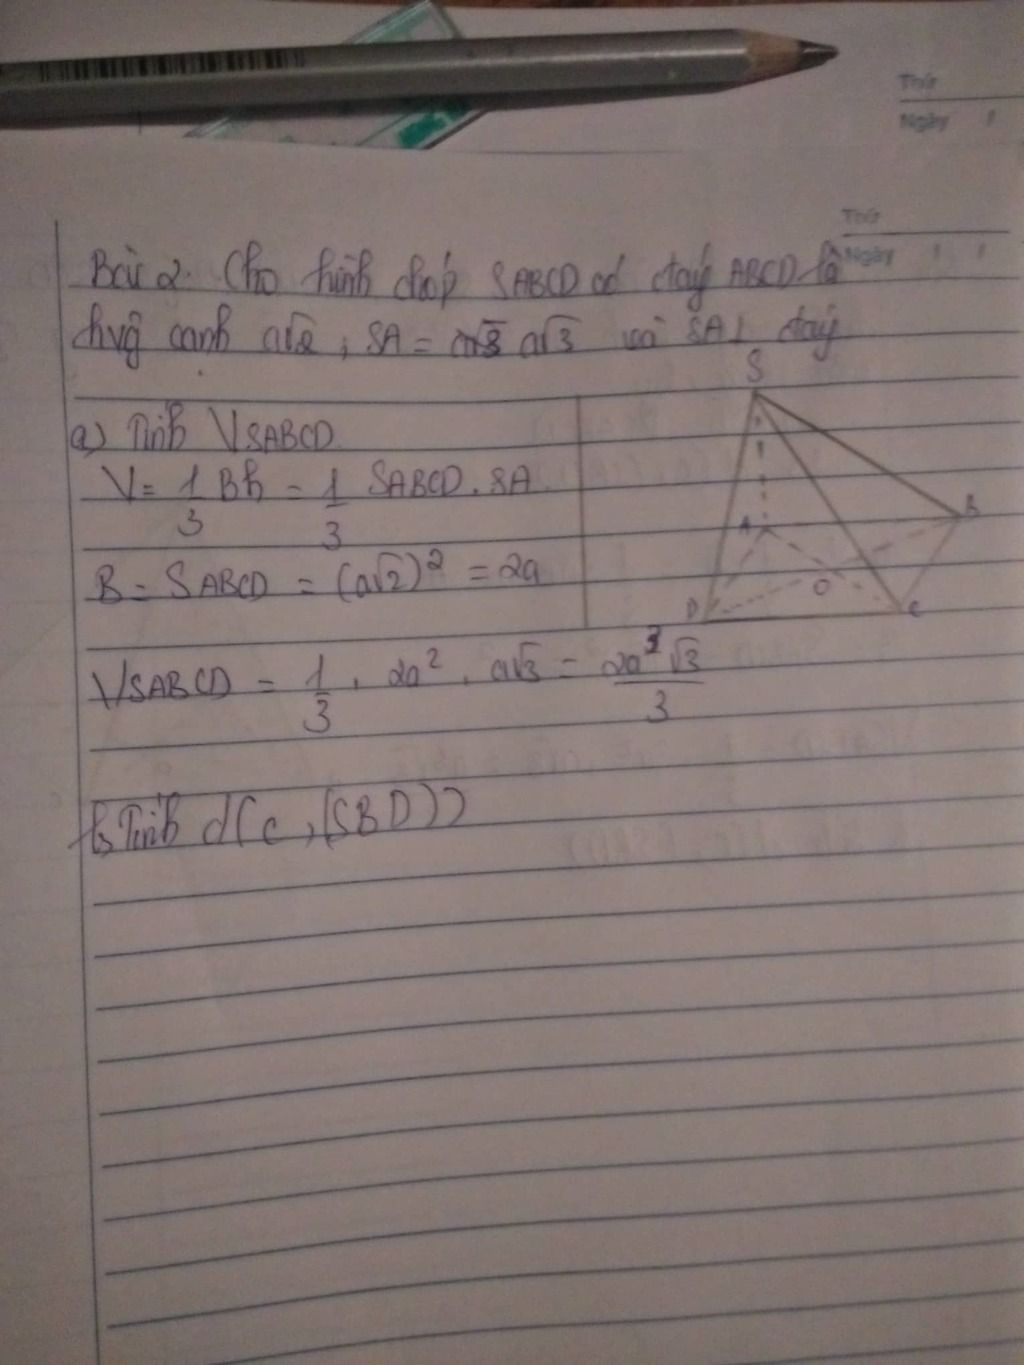 Thứ
Ngày
Thứ
Ngày
Bài 2. Cho hình chóp SABCD có đáy ABCD là
hvg cạnh a√2, SA = a√3 a√3 và SA⊥ đáy
S
A
B
D
O
C
a) Tính VSABCD
V = 1/3 Bh = 1/3 SABCD . SA
B = SABCD = (a√2)² = 2a
VSABCD = 1/3 . 2a² . a√3 = 2a³√3/3
b, Tính d(C, (SBD))